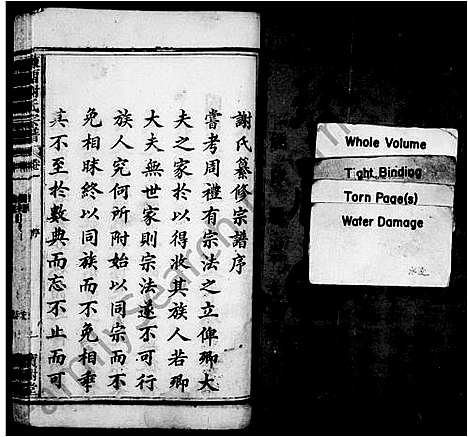 謝氏纂修宗譜序
嘗考周禮有宗法之立俾卿大
夫之家於以得收其族人若卿
大夫無世家則宗法遂不可行
族人究何所附始以同宗而不
免相眛終以同族而不免相乖
其不至於數典而忘不止而可
Whole Volume
Tight Binding
Torn Page(s)
Water Damage